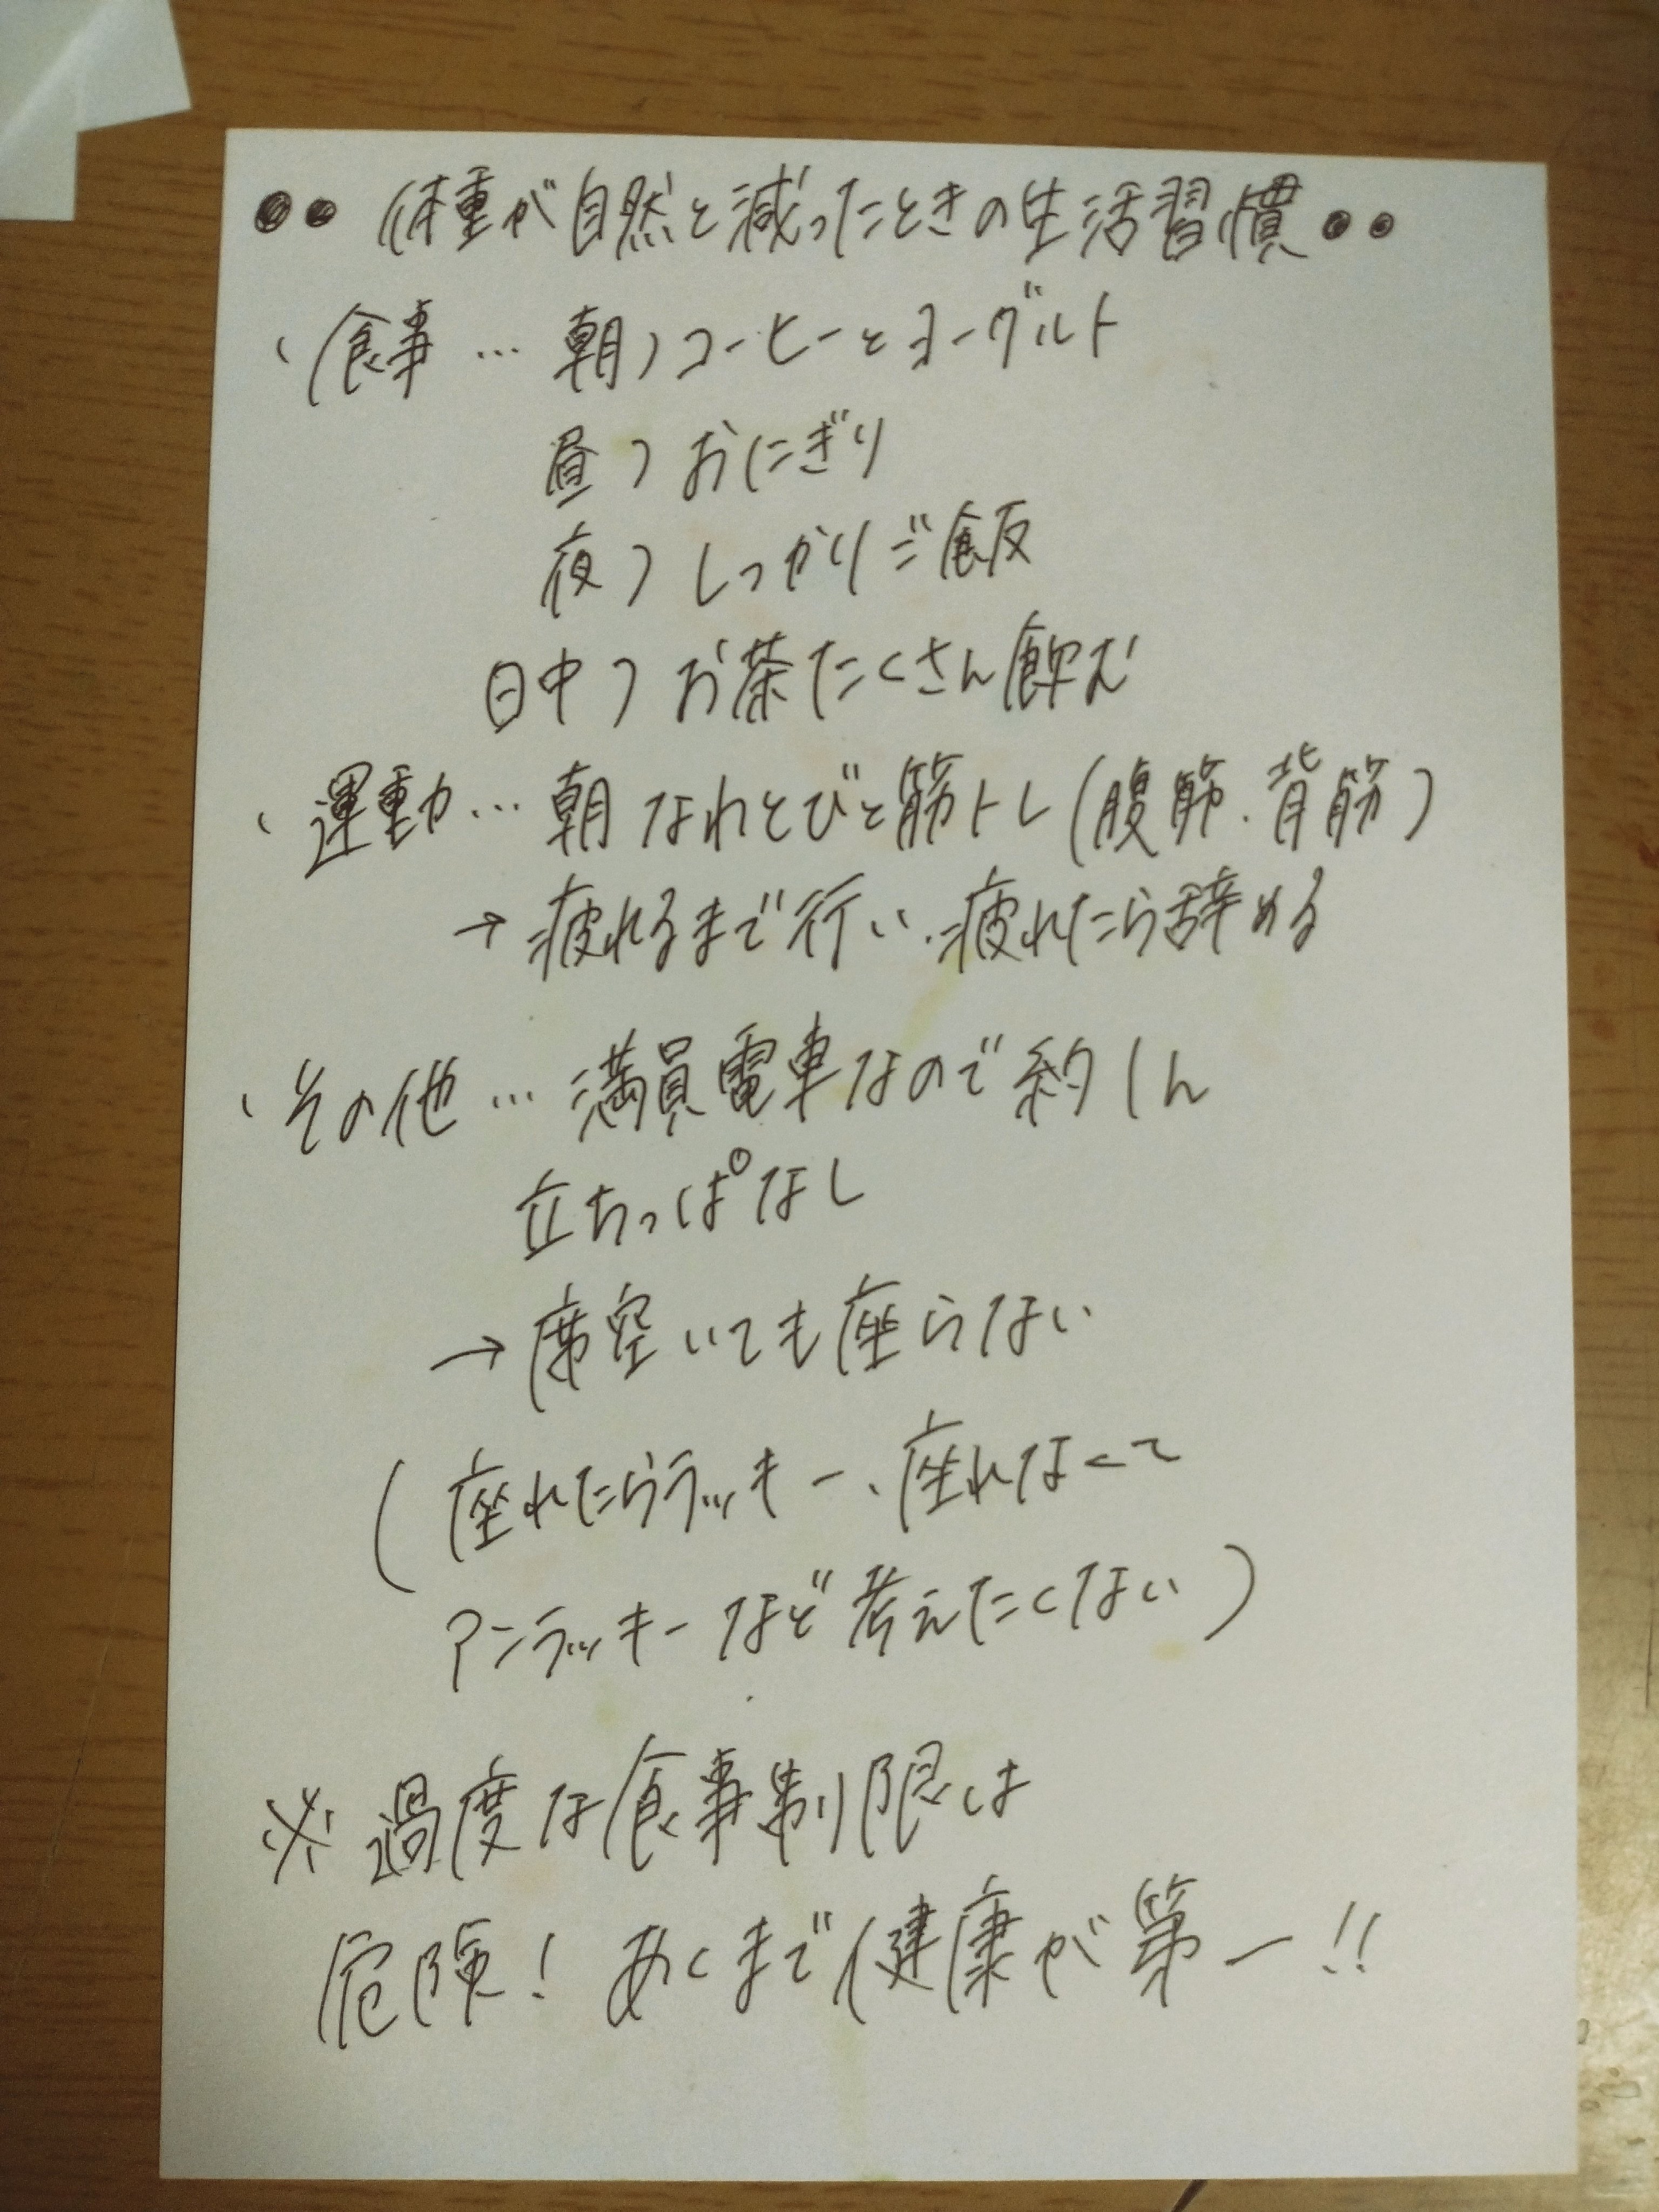 ●● 体重が自然と減ったときの生活習慣 ●●
・食事 … 朝)コーヒーとヨーグルト
昼)おにぎり
夜)しっかりご飯
日中)お茶たくさん飲む
・運動 … 朝なわとびと筋トレ(腹筋、背筋)
→疲れるまで行い、疲れたら辞める
・その他 … 満員電車なので約1h
立ちっぱなし
→席空いても座らない
(座れたらラッキー、座れなくて
アンラッキーなど考えたくない)
※過度な食事制限は
危険! あくまで健康が第一!!